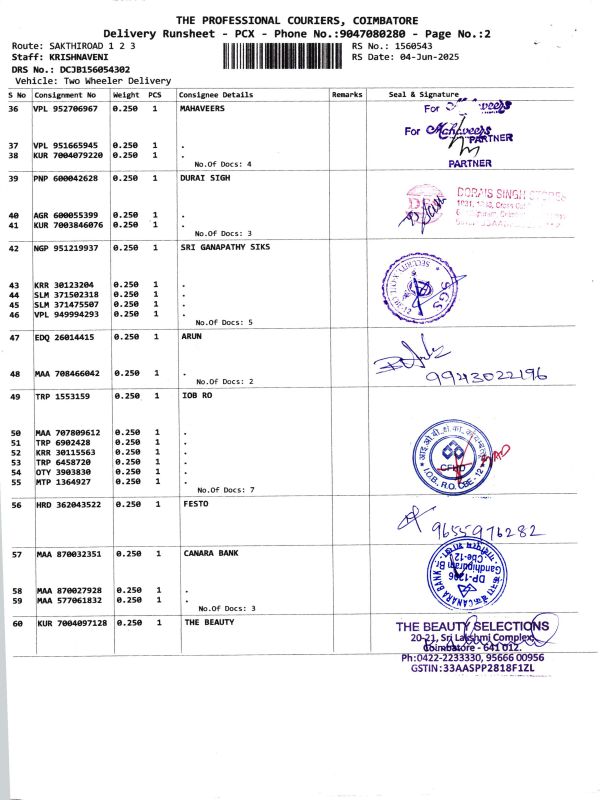 THE PROFESSIONAL COURIERS, COIMBATORE
Delivery Runsheet - PCX - Phone No.:9047080280 - Page No.:2
Route: SAKTHIROAD 1 2 3 RS No.: 1560543
Staff: KRISHNAVENI RS Date: 04-Jun-2025
DRS No.: DCJB156054302
Vehicle: Two Wheeler Delivery
S No Consignment No Weight PCS Consignee Details Remarks Seal & Signature
36 VPL 952706967 0.250 1 MAHAVEERS
For
For Mahaveers
PARTNER
37 VPL 951665945 0.250 1 .
38 KUR 7004079220 0.250 1 .
No.Of Docs: 4
PARTNER
39 PNP 600042628 0.250 1 DURAI SIGH
DORAIS SINGH STORES
40 AGR 600055399 0.250 1 .
41 KUR 7003846076 0.250 1 .
No.Of Docs: 3
42 NGP 951219937 0.250 1 SRI GANAPATHY SIKS
SGS
43 KRR 30123204 0.250 1 .
44 SLM 371502318 0.250 1 .
45 SLM 371475507 0.250 1 .
46 VPL 949994293 0.250 1 .
No.Of Docs: 5
47 EDQ 26014415 0.250 1 ARUN
48 MAA 708466042 0.250 1 .
No.Of Docs: 2
9943022196
49 TRP 1553159 0.250 1 IOB RO
50 MAA 707809612 0.250 1 .
51 TRP 6902428 0.250 1 .
52 KRR 30115563 0.250 1 .
53 TRP 6458720 0.250 1 .
54 OTY 3903830 0.250 1 .
55 MTP 1364927 0.250 1 .
No.Of Docs: 7
I.O.B, R.O. CBE-12
56 HRD 362043522 0.250 1 FESTO
9655976282
57 MAA 870032351 0.250 1 CANARA BANK
58 MAA 870027928 0.250 1 .
59 MAA 577061832 0.250 1 .
No.Of Docs: 3
CANARA BANK
DP-1206
Gandhipuram Br.
Cbe-12.
60 KUR 7004097128 0.250 1 THE BEAUTY
THE BEAUTY SELECTIONS
20-21, Sri Lakshmi Complex,
Coimbatore - 641 012.
Ph:0422-2233330, 95666 00956
GSTIN:33AASPP2818F1ZL